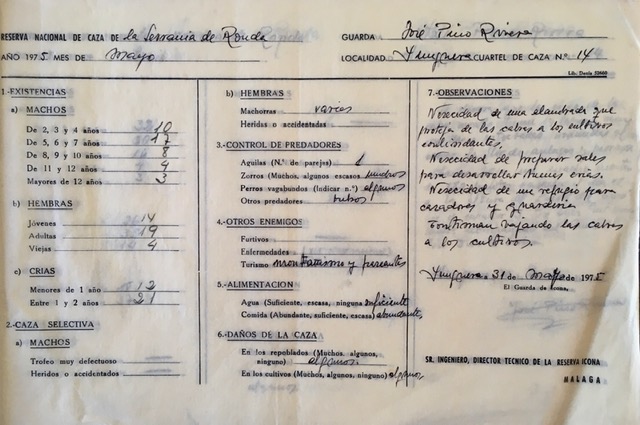 RESERVA NACIONAL DE CAZA DE la Serranía de Ronda
AÑO 1975 MES DE Mayo
GUARDA José Pino Rivera
LOCALIDAD Yunquera CUARTEL DE CAZA N.º 14
Lib. Denis 52660
1.-EXISTENCIAS
a) MACHOS
De 2, 3 y 4 años 10
De 5, 6 y 7 años 17
De 8, 9 y 10 años 8
De 11 y 12 años 4
Mayores de 12 años 3
b) HEMBRAS
Jóvenes 14
Adultas 19
Viejas 4
c) CRIAS
Menores de 1 año 12
Entre 1 y 2 años 21
2.-CAZA SELECTIVA
a) MACHOS
Trofeo muy defectuoso
Heridos o accidentados
b) HEMBRAS
Machorras varias
Heridas o accidentadas
3.-CONTROL DE PREDADORES
Aguilas (N.º de parejas) 1
Zorros (Muchos, algunos escasos) muchos
Perros vagabundos (Indicar n.º) algunos
Otros predadores buhos
4.-OTROS ENEMIGOS
Furtivos
Enfermedades
Turismo montañismo y
5.-ALIMENTACION
Agua (Suficiente, escasa, ninguna) suficiente
Comida (Abundante, suficiente, escasa) abundante
6.-DAÑOS DE LA CAZA
En los repoblados (Muchos, algunos,
ninguno) algunos
En los cultivos (Muchos, algunos, ninguno) algunos
7.-OBSERVACIONES
Necesidad de una alambrada que
proteja de las cabras a los cultivos
colindantes.
Necesidad de preparar sales
para desarrollar buenas crias.
Necesidad de un refugio para
cazadores y guarderia
Continuan bajando las cabras
a los cultivos.
Yunquera 31 de Mayo de 1975
El Guarda de Icona,
SR. INGENIERO, DIRECTOR TECNICO DE LA RESERVA ICONA
MALAGA